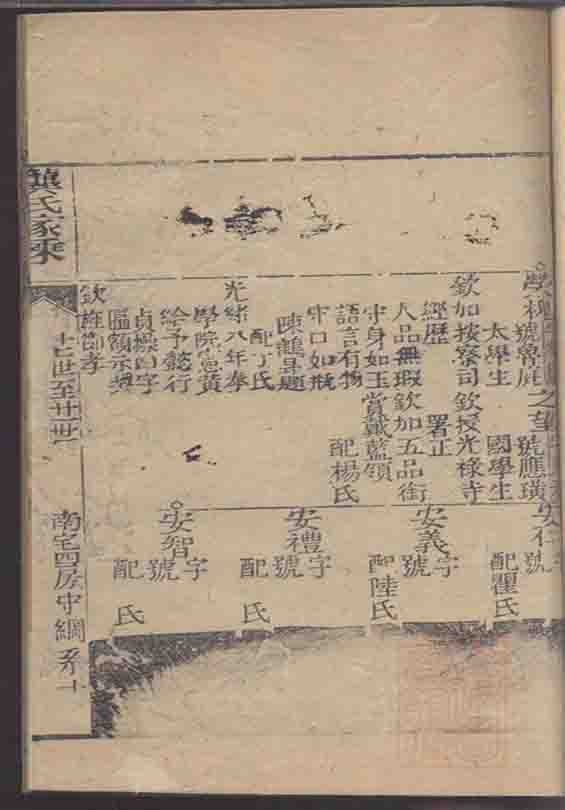 龔氏家乘
十七世至廿一世
南宅四房中綱系十
號魯庭
太學生
欽加按察司
經歷
人品無瑕
守身如玉
語言有物
守口如瓶
陳龍灵題
配丁氏
光緒八年奉
學院憲黃
給予懿行
貞操四字
匾額示獎
欽旌節孝
之望
號應璜
國學生
欽授光祿寺
署正
欽加五品銜
賞戴藍翎
配楊氏
安仁
號
配瞿氏
安義
字
號
配陸氏
安禮
字
號
配 氏
安智
字
號
配 氏